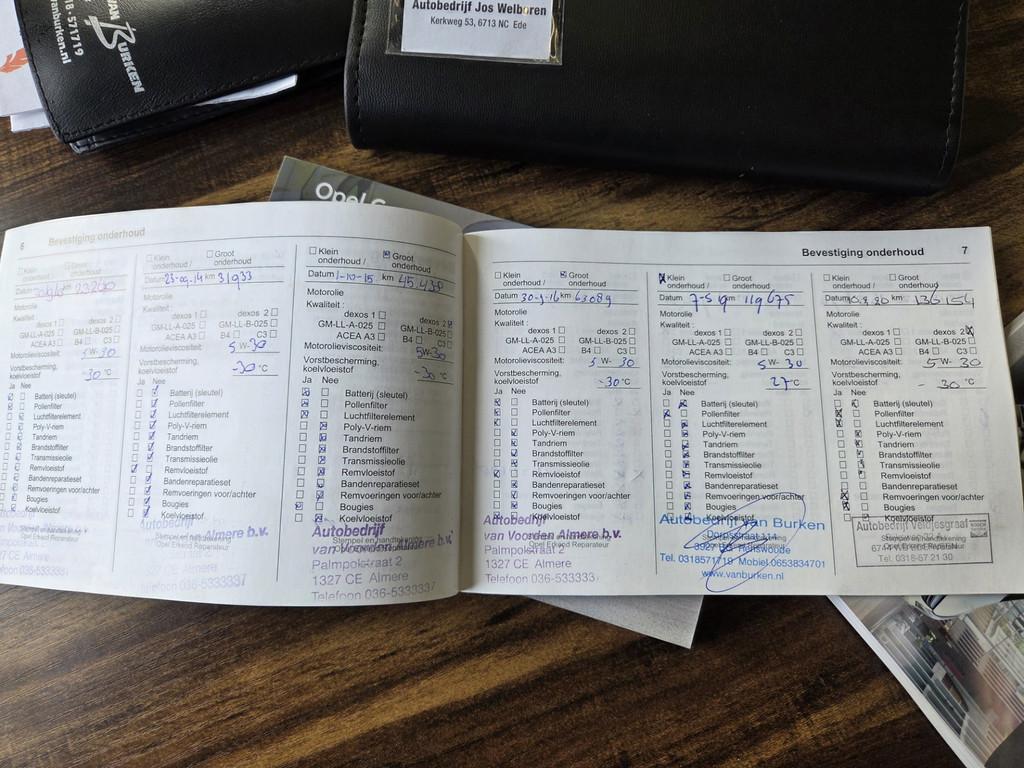 VAN BURKEN
18-571719
anburken.nl
Autobedrijf Jos Welboren
Kerkweg 53, 6713 NC Ede
Opel
6
Bevestiging onderhoud
Klein onderhoud / Groot onderhoud
Datum km 23260
Motorolie
Kwaliteit :
dexos 1 dexos 2
GM-LL-A-025 GM-LL-B-025
ACEA A3 B4 C3
Motorolieviscositeit: 5W-30
Vorstbescherming,
koelvloeistof -30 °C
Ja Nee
Batterij (sleutel)
Pollenfilter
Luchtfilterelement
Poly-V-riem
Tandriem
Brandstoffilter
Transmissieolie
Remvloeistof
Bandenreparatieset
Remvoeringen voor/achter
Bougies
Koelvloeistof
Klein onderhoud / Groot onderhoud
Datum 23-09-14 km 31933
Motorolie
Kwaliteit :
dexos 1 dexos 2
GM-LL-A-025 GM-LL-B-025
ACEA A3 B4 C3
Motorolieviscositeit: 5W-30
Vorstbescherming,
koelvloeistof -30 °C
Ja Nee
Batterij (sleutel)
Pollenfilter
Luchtfilterelement
Poly-V-riem
Tandriem
Brandstoffilter
Transmissieolie
Remvloeistof
Bandenreparatieset
Remvoeringen voor/achter
Bougies
Koelvloeistof
Autobedrijf
van Voorden Almere b.v.
Palmpolstraat 2
1327 CE Almere
Telefoon 036-5333337
Klein onderhoud / Groot onderhoud
Datum 1-10-15 km 45.438
Motorolie
Kwaliteit :
dexos 1 dexos 2
GM-LL-A-025 GM-LL-B-025
ACEA A3 B4 C3
Motorolieviscositeit: 5W-30
Vorstbescherming,
koelvloeistof -30 °C
Ja Nee
Batterij (sleutel)
Pollenfilter
Luchtfilterelement
Poly-V-riem
Tandriem
Brandstoffilter
Transmissieolie
Remvloeistof
Bandenreparatieset
Remvoeringen voor/achter
Bougies
Koelvloeistof
Stempel en handtekening
Opel Erkend Reparateur
Autobedrijf
van Voorden Almere b.v.
Palmpolstraat 2
1327 CE Almere
Telefoon 036-5333337
Bevestiging onderhoud
7
Klein onderhoud / Groot onderhoud
Datum 30-9-16 km 63089
Motorolie
Kwaliteit :
dexos 1 dexos 2
GM-LL-A-025 GM-LL-B-025
ACEA A3 B4 C3
Motorolieviscositeit: 5W-30
Vorstbescherming,
koelvloeistof -30 °C
Ja Nee
Batterij (sleutel)
Pollenfilter
Luchtfilterelement
Poly-V-riem
Tandriem
Brandstoffilter
Transmissieolie
Remvloeistof
Bandenreparatieset
Remvoeringen voor/achter
Bougies
Koelvloeistof
Stempel en handtekening
Opel Erkend Reparateur
Autobedrijf
van Voorden Almere b.v.
Palmpolstraat 2
1327 CE Almere
Telefoon 036-5333337
Klein onderhoud / Groot onderhoud
Datum 7-5-19 km 119675
Motorolie
Kwaliteit :
dexos 1 dexos 2
GM-LL-A-025 GM-LL-B-025
ACEA A3 B4 C3
Motorolieviscositeit: 5W-30
Vorstbescherming,
koelvloeistof 27 °C
Ja Nee
Batterij (sleutel)
Pollenfilter
Luchtfilterelement
Poly-V-riem
Tandriem
Brandstoffilter
Transmissieolie
Remvloeistof
Bandenreparatieset
Remvoeringen voor/achter
Bougies
Koelvloeistof
Autobedrijf van Burken
Dorpsstraat 114
3927 Renswoude
Tel. 0318571719 Mobiel 0653834701
www.vanburken.nl
Klein onderhoud / Groot onderhoud
Datum 8.20 km 136154
Motorolie
Kwaliteit :
dexos 1 dexos 2
GM-LL-A-025 GM-LL-B-025
ACEA A3 B4 C3
Motorolieviscositeit: 5W-30
Vorstbescherming,
koelvloeistof -30 °C
Ja Nee
Batterij (sleutel)
Pollenfilter
Luchtfilterelement
Poly-V-riem
Tandriem
Brandstoffilter
Transmissieolie
Remvloeistof
Bandenreparatieset
Remvoeringen voor/achter
Bougies
Koelvloeistof
Autobedrijf Veldjesgraaf
Tel. 0318-57 21 30